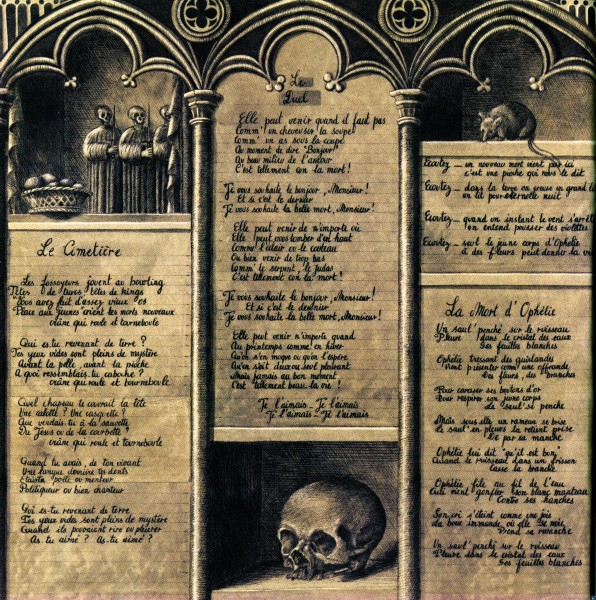 Le Cimetière
Les fossoyeurs jouent au bowling
Têtes de turcs têtes de kings
Vous avez fait d'assez vieux os
Place aux jeunes crient les morts nouveaux
crâne qui roule et tourneboule
Qui es-tu revenant de terre ?
Tes yeux vides sont pleins de mystère
Avant la pelle, avant la pioche
A quoi ressemblais tu caboche ?
crâne qui roule et tourneboule
Quel chapeau te couvrait la tête
Une calotte ? Une casquette ?
Que vendais-tu à la sauvette
Du Jésus ou de la
crâne qui roule et tourneboule
Quand tu avais, de ton vivant
Une langue derrière tes dents
Etais-tu poète ou menteur
Politiqueur ou bien chanteur
Qui es-tu revenant de terre
Tes yeux vides sont pleins de mystère
Quand ils pouvaient rire ou pleurer
As tu aimé ? As-tu aimé ?
Le
Duel
Elle peut venir quand il faut pas
Comm' un cheveu sur la soupe
Comm' un as sous la coupe
Au moment de dire "Bonjour"
Au beau milieu de l'amour
C'est tellement con la mort !
Je vous souhaite le bonjour, Monsieur !
Et si c'est le dernier
Je vous souhaite la belle mort, Monsieur !
Elle peut venir de n'importe où
Elle peut vous tomber d'en haut
Comm' l'éclair ou le couteau
Ou bien venir de trop bas
Comm' le serpent, le Judas
C'est tellement con la mort !
Je vous souhaite le bonjour, Monsieur !
Et si c'est le dernier
Je vous souhaite la belle mort, Monsieur !
Elle peut venir n'importe quand
Au printemps comme en hiver
Qu'on s'en moque ou qu'on l'espère
Qu'on soit deux ou seul pleurant
Mais jamais au bon moment
C'est tellement beau la vie !
Je l'aimais - Je l'aimais
Je l'aimais - Je l'aimais
Ecoutez - un nouveau mort vient par ici
c'est une pioche qui nous le dit
Ecoutez - dans la terre on creuse un grand lit
un lit pour éternelle nuit
Ecoutez - quand un instant le vent s'arrête
on entend pousser des violettes
Ecoutez - seul le jeune corps d'Ophélie
a des fleurs peut donner la vie
La Mort d'Ophélie
Un saul' penché sur le ruisseau
Pleure dans le cristal des eaux
Ses feuilles blanches
Ophélie tressant des guirlandes
Vient présenter comme une offrande
Des fleurs, des branches
Pour caresser ses boutons d'or
Pour respirer son jeune corps
Le saul' se penche
Mais sous elle un rameau se brise
Le saul' en pleurs la retient prise
De par sa manche
Ophélie lui dit "qu'il est bon"
Quand le ruisseau dans un frisson
Casse la branche
Ophélie file au fil de l'eau
Qui vient gonfler son blanc manteau
Contre ses hanches
Son cri s'éteint comme une joie
La boue immonde où elle se noie
Prend sa revanche
Un saul' penché sur le ruisseau
Pleure dans le cristal des eaux
Ses feuilles blanches